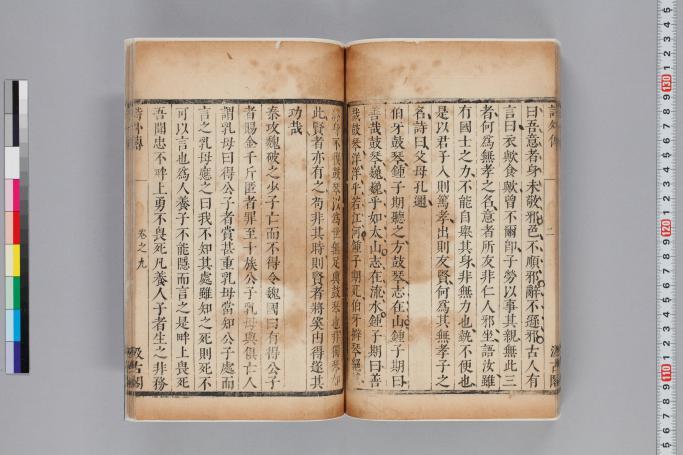 詩外傳
二
汲古閣
曰吾意者身未敬邪色不順邪辭不遜邪古人有
言曰衣歟食歟曾不爾卽子勞以事其親無此三
者何爲無孝之名意者所友非仁人邪坐語汝雖
有國士之力不能自舉其身非無力也勢不便也
是以君子入則篤孝出則友賢何爲其無孝子之
名詩曰父母孔邇
伯牙鼓琴鍾子期聽之方鼓琴志在山鍾子期曰
善哉鼓琴巍巍乎如太山志在流水鍾子期曰善
哉鼓琴洋洋乎若江河鍾子期死伯牙擗琴絕
終身不復鼓琴以爲世無足與鼓琴也非獨琴如
此賢者亦有之苟非其時則賢者將奚由得遂其
功哉
秦攻魏破之少子亡而不得令魏國曰有得公子
者賜金千斤匿者罪至十族公子乳母與俱亡人
謂乳母曰得公子者賞甚重乳母當知公子處而
言之乳母應之曰我不知其處雖知之死則死不
可以言也爲人養子不能隱而言之是畔上畏死
吾聞忠不畔上勇不畏死凡養人子者生之非務
詩外傳
卷之九
汲古閣
5
4
3
2
1
130
9
8
7
6
5
4
3
2
1
120
9
8
7
6
5
4
3
2
1
110
9
8
7
6
5